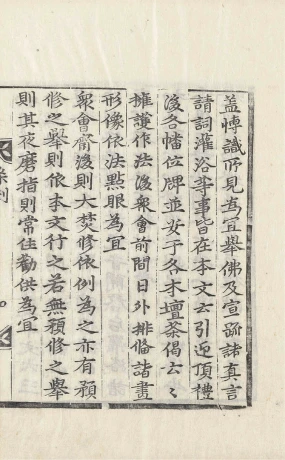 盖博識所見直宜舉佛及宣疏諸真言
請詞灌浴等事皆在本文云引迎頂禮
後各幡位牌並安于各木壇茶偈云〻
擁護作法後衆會前間日外排脩諸畫
形像依法點眼為宜
衆會齋後則大焚修依例為之亦有預
修之舉則依本文行之若無預修之舉
則其夜磨指則常住勸供為宜